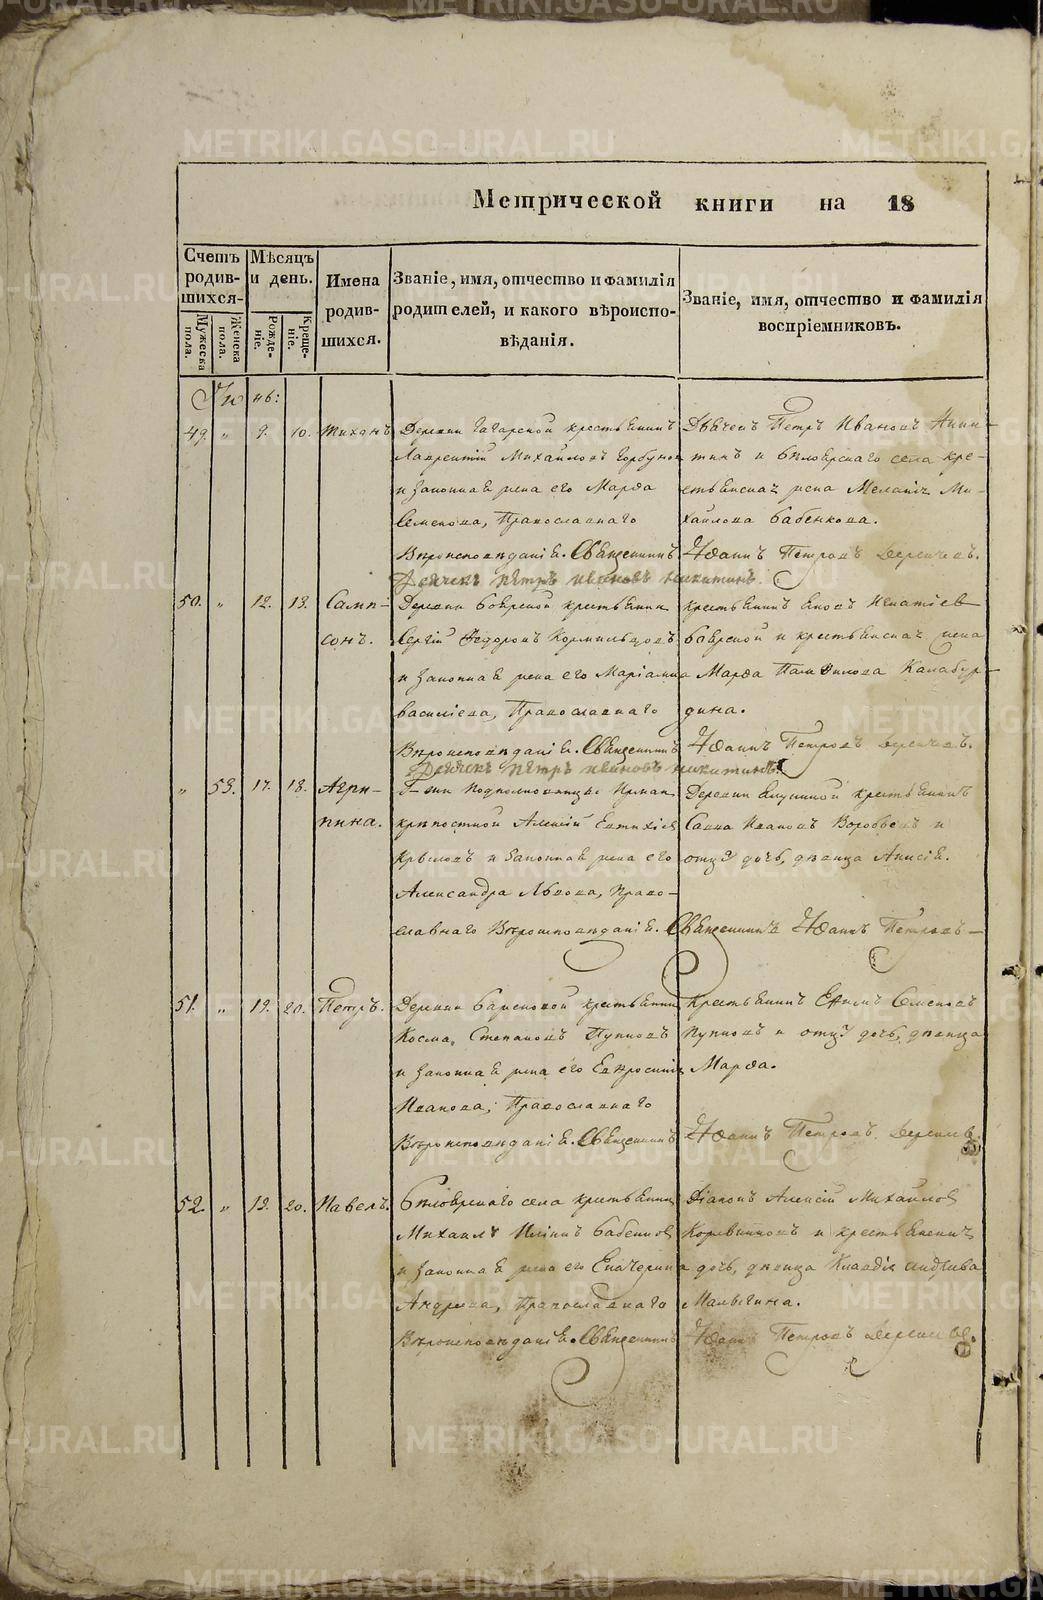 Метрической книги на 18
Счетъ родив-шихся.
Мужеска пола.
Женска пола.
Мѣсяцъ и день.
Рожде-ніе.
Креще-ніе.
Имена родив-шихся.
Званіе, имя, отчество и фамилія родителей, и какого вѣроиспо-вѣданія.
Званіе, имя, отчество и фамилія воспріемниковъ.
49. " 9. 10. Тихонъ
Деревни Гагарской крестьянинъ
Лаврентій Михайловъ Горбунов
и законная жена его Марѳа
Семенова, Православнаго
Вѣроисповѣданія. Священникъ Іоаннъ Петровъ
Дьячекъ Петръ Ивановъ Никитинъ.
Дьячекъ Петръ Ивановъ Ники-
тинъ и Бѣлоярскаго села кре-
стьянская жена Меланія Ми-
хайлова Бабенкова.
50. " 12. 13. Самп-
сонъ.
Деревни Боярской крестьянин
Сергій Ѳедоровъ
и законная жена его Маріамна
Васильева, Православнаго
Вѣроисповѣданія. Священникъ Іоаннъ Петровъ
Дьячекъ Петръ Ивановъ Никитинъ.
крестьянинъ Игнатіев
Боярской и крестьянская жена
Марѳа Памфилова Калабур-
дина.
" 53. 17. 18. Агри-
пина.
Г-жи Подполковницы
крѣпостной Алексій Евтихіев
Крыловъ и законная жена его
Александра Львова, Право-
славнаго Вѣроисповѣданія. Священникъ Іоаннъ Петровъ
Деревни крестьянинъ
Савва Ивановъ Воробьевъ и
дочь, дѣвица Анисія.
51. " 19. 20. Петръ.
Деревни крестьянин
Косма Степановъ Пупковъ
и законная жена его Евфросинія
Иванова, Православнаго
Вѣроисповѣданія. Священникъ Іоаннъ Петровъ
крестьянинъ Ефимъ Семеновъ
Пупковъ и дочь, дѣвица
Марѳа.
52. " 19. 20. Павелъ.
Бѣлоярскаго села крестьянин
Михаилъ Ильинъ Бабенков
и законная жена его Екатерина
Андреева, Православнаго
Вѣроисповѣданія. Священникъ Іоаннъ Петровъ
Діаконъ Алексій Михайлов
и крестьянская
дочь, дѣвица Клавдія Андреева
Малыгина.
METRIKI.GASO-URAL.RU